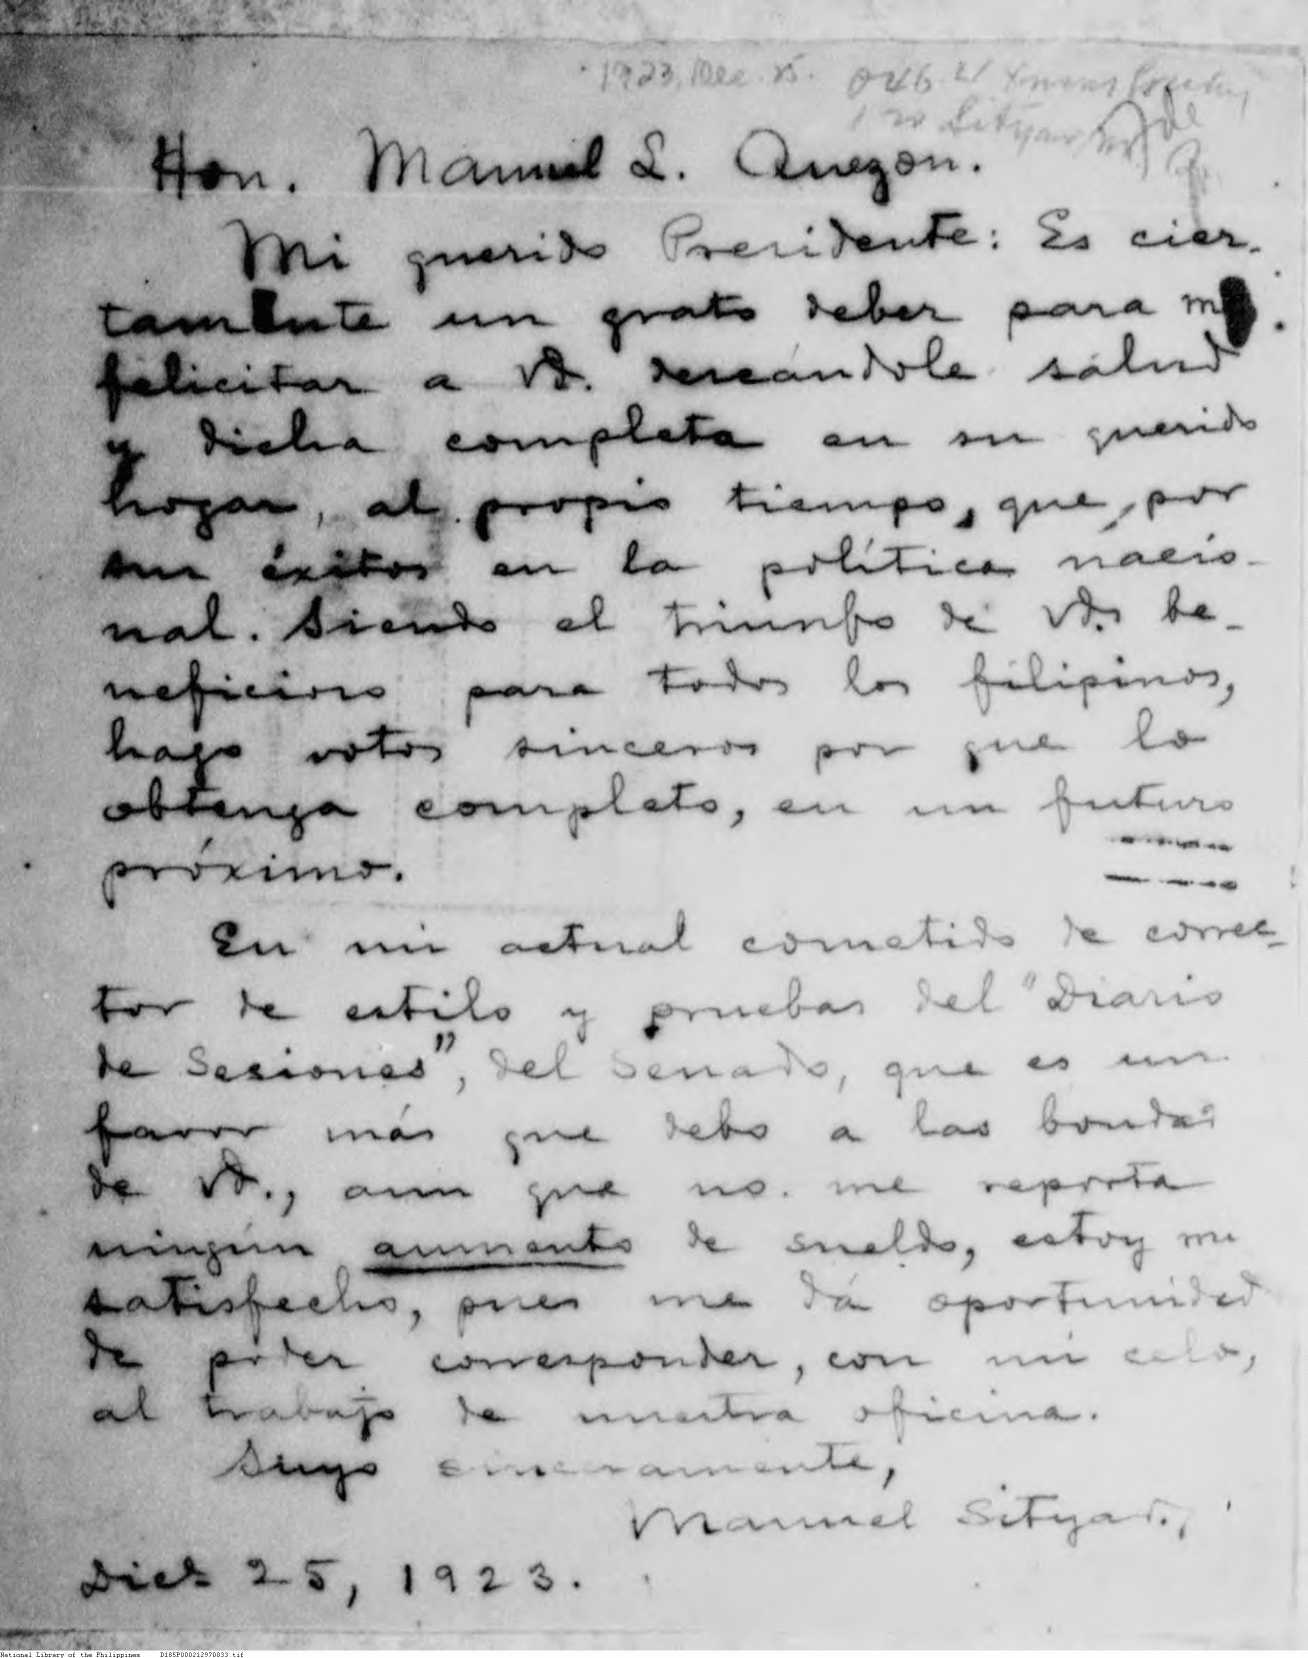 1923, Dec. 25.
Hon. Manuel L. Quezon.
Mi querido Presidente: Es cier-
tamente un grato deber para mí
felicitar a Vd. deseándole salud
y dicha completa en su querido
hogar, al propio tiempo, que, por
sus éxitos en la política nacio-
nal. Siendo el triunfo de Vd. be-
neficioso para todos los filipinos,
hago votos sinceros por que lo
obtenga completo, en un futuro
próximo.
En mi actual cometido de correc-
tor de estilo y pruebas del "Diario
de Sesiones", del Senado, que es un
favor más que debo a las bondades
de Vd., aun que no me reporta
ningún aumento de sueldo, estoy mu
satisfecho, pues me dá oportunidad
de poder corresponder, con mi celo,
al trabajo de nuestra oficina.
Suyo sinceramente,
Manuel Sityar.
Dic. 25, 1923.
National Library of the Philippines D185P000212970833.tif